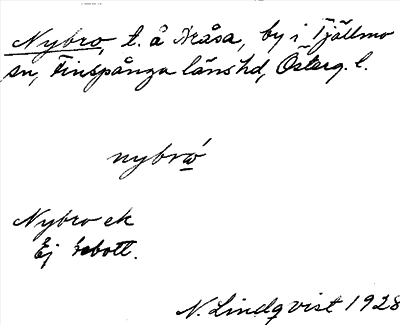 Nybro, t. å Dråsa, by i Tjällmo
sn, Finspånga länshd, Österg. l.
nybrω´
Nybro ek
Ej bebott.
N. Lindqvist 1928